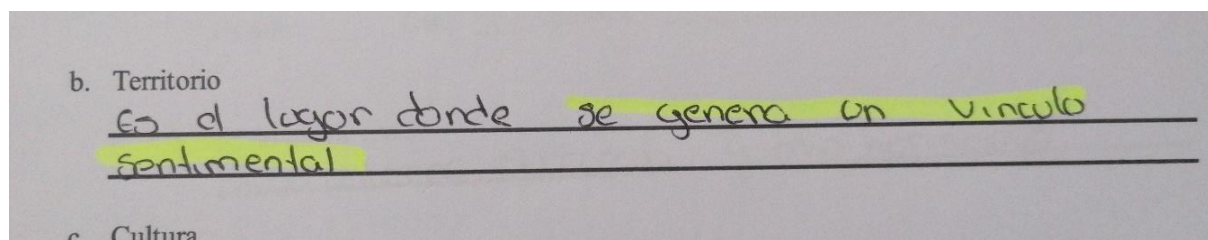 b. Territorio
Es el lugar donde se genera un vinculo
sentimental
c. Cultura